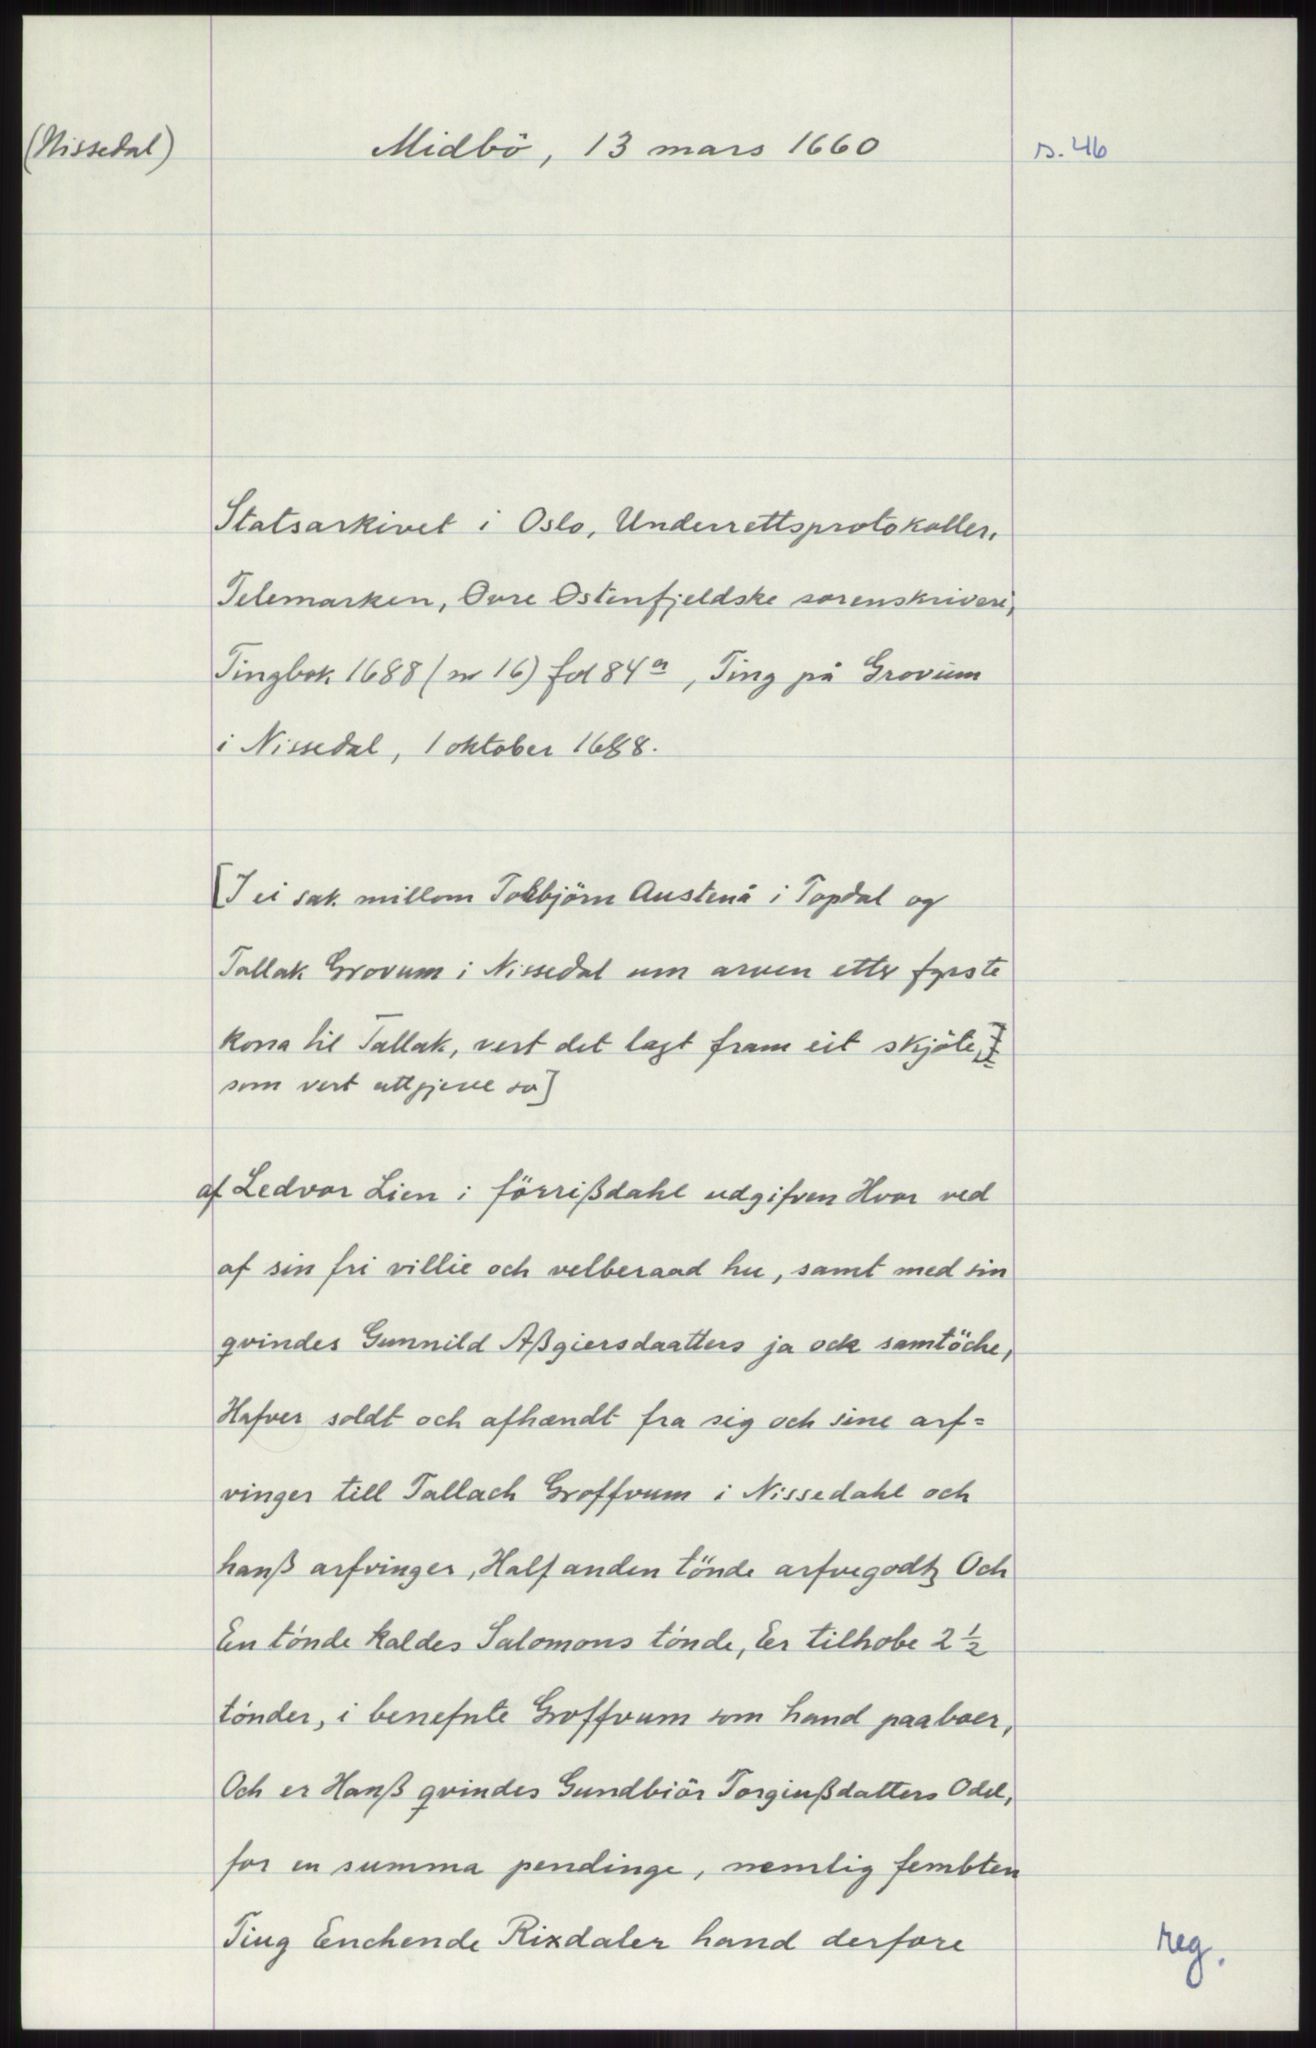 (Nissedal)
Midbö, 13 mars 1660
s. 46
Statsarkivet i Oslo, Underrettsprotokoller,
Telemarken, Øvre Østenfjeldske sorenskriveri,
Tingbok 1688 (nr 16) fol 84a, Ting på Grovum
i Nissedal, 1 oktober 1688.
[I ei sak millom Tolbjörn Austenå i Topdal og
Tallak Grovum i Nissedal um arven etter fyrste
kona til Tallak, vert det lagt fram eit skjöte,
som vert attgjeve so]
af Ledvor Lien i försißdahl udgifven Hvor ved
af sin fri villie och velberaad hu, samt med sin
qvindes Gunnild Aßgiersdaatters ja ock samtöche,
Hafver soldt och afhændt fra sig och sine arf=
vinger till Tallach Groffvum i Nissedahl och
hanß arfvinger, Half anden tönde arfvegodtz Och
En tónde kaldes Salomons tónde, Er tilhobe 2 ½
tónder, i benefnte Groffvum som hand paaboer,
Och er Hanß qvindes Gundbiör Torgiußdatters Odel,
for en summa pendinge, nemlig fembten
Tiug Enchende Rixdaler hand derfore
reg.